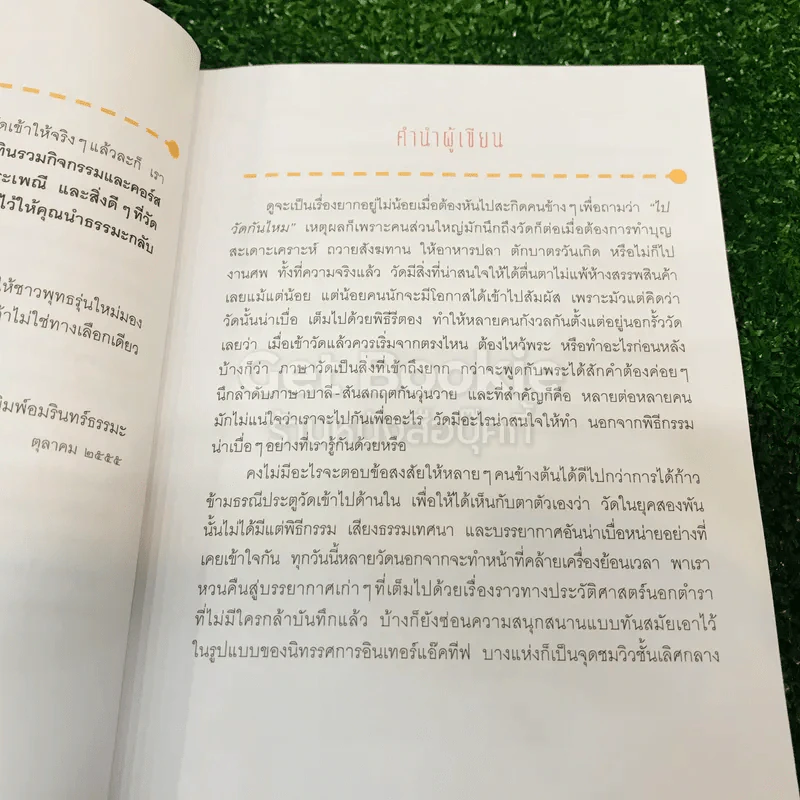 เข้าให้จริงๆแล้วละก็ เรา
ทินรวมกิจกรรมและคอร์ส
ะเพณี และสิ่งดีๆที่วัด
ไว้ให้คุณนำธรรมะกลับ
ให้ชาวพุทธรุ่นใหม่มอง
าไม่ใช่ทางเลือกเดียว
พิมพ์อมรินทร์ธรรมะ
ตุลาคม ๒๕๕๕
คำนำผู้เขียน
ดูจะเป็นเรื่องยากอยู่ไม่น้อยเมื่อต้องหันไปสะกิดคนข้างๆเพื่อถามว่า “ไป
วัดกันไหม” เหตุผลก็เพราะคนส่วนใหญ่มักนึกถึงวัดก็ต่อเมื่อต้องการทำบุญ
สะเดาะเคราะห์ ถวายสังฆทาน ให้อาหารปลา ตักบาตรวันเกิด หรือไม่ก็ไป
งานศพ ทั้งที่ความจริงแล้ว วัดมีสิ่งที่น่าสนใจให้ได้ตื่นตาไม่แพ้ห้างสรรพสินค้า
เลยแม้แต่น้อย แต่น้อยคนนักจะมีโอกาสได้เข้าไปสัมผัส เพราะมัวแต่คิดว่า
วัดนั้นน่าเบื่อ เต็มไปด้วยพิธีรีตอง ทำให้หลายคนกังวลกันตั้งแต่อยู่นอกรั้ววัด
เลยว่า เมื่อเข้าวัดแล้วควรเริ่มจากตรงไหน ต้องไหว้พระ หรือทำอะไรก่อนหลัง
บ้างก็ว่า ภาษาวัดเป็นสิ่งที่เข้าถึงยาก กว่าจะพูดกับพระได้สักคำต้องค่อยๆ
นึกลำดับภาษาบาลี-สันสกฤตกันวุ่นวาย และที่สำคัญก็คือ หลายต่อหลายคน
มักไม่แน่ใจว่าเราจะไปกันเพื่ออะไร วัดมีอะไรน่าสนใจให้ทำ นอกจากพิธีกรรม
น่าเบื่อๆอย่างที่เรารู้กันด้วยหรือ
คงไม่มีอะไรจะตอบข้อสงสัยให้หลายๆคนข้างต้นได้ดีไปกว่าการได้ก้าว
ข้ามธรณีประตูวัดเข้าไปด้านใน เพื่อให้ได้เห็นกับตาตัวเองว่า วัดในยุคสองพัน
นั้นไม่ได้มีแต่พิธีกรรม เสียงธรรมเทศนา และบรรยากาศอันน่าเบื่อหน่ายอย่างที่
เคยเข้าใจกัน ทุกวันนี้หลายวัดนอกจากจะทำหน้าที่คล้ายเครื่องย้อนเวลา พาเรา
หวนคืนสู่บรรยากาศเก่าๆที่เต็มไปด้วยเรื่องราวทางประวัติศาสตร์นอกตำรา
ที่ไม่มีใครกล้าบันทึกแล้ว บ้างก็ยังซ่อนความสนุกสนานแบบทันสมัยเอาไว้
ในรูปแบบของนิทรรศการอินเทอร์แอ๊คทีฟ บางแห่งก็เป็นจุดชมวิวชั้นเลิศกลาง
Get Bookie
ร้านหนังสือบุ๊คกี้